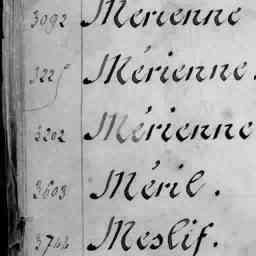 3092 Mérienne
3225 Mérienne.
3202 Mérienne
3603 Méril.
Meslif.